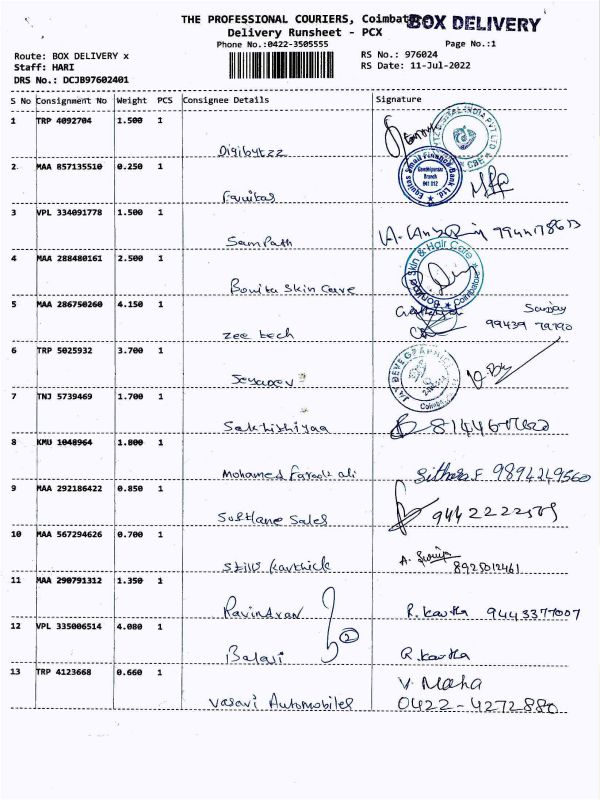 THE PROFESSIONAL COURIERS, Coimbat
BOX DELIVERY
Delivery Runsheet - PCX
Phone No.:0422-3505555
Page No.:1
Route: BOX DELIVERY x
RS No.: 976024
Staff: HARI
RS Date: 11-Jul-2022
DRS No.: DCJB97602401
S No Consignment No Weight PCS Consignee Details Signature
1 TRP 4092704 1.500 1
Digibytzz
2 MAA 857135510 0.250 1
Equitas Small Finance Bank Ltd.
Equitas
3 VPL 334091778 1.500 1
Sampath
4 MAA 288480161 2.500 1
Skin & Hair Care
Coimbatore
Bonita Skin Care
5 MAA 286750260 4.150 1
Sanjay
Zee tech
99439 79790
6 TRP 5025932 3.700 1
7 TNJ 5739469 1.700 1
8 KMU 1048964 1.800 1
Mohamed Farook ali
9894249560
9 MAA 292186422 0.850 1
Softlane Sales
10 MAA 567294626 0.700 1
Skills Karthick
8925012461
11 MAA 290791312 1.350 1
Ravindran
R. Kavtha 9443377007
12 VPL 335006514 4.080 1
2
Balaji
R. Kavtha
13 TRP 4123668 0.660 1
V. Maha
Vasavi Automobiles
0422-4272880